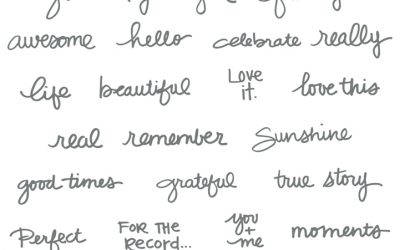 awesome hello celebrate really
life beautiful Love it. love this
real remember Sunshine
good times grateful true story
Perfect FOR THE RECORD... you + me moments